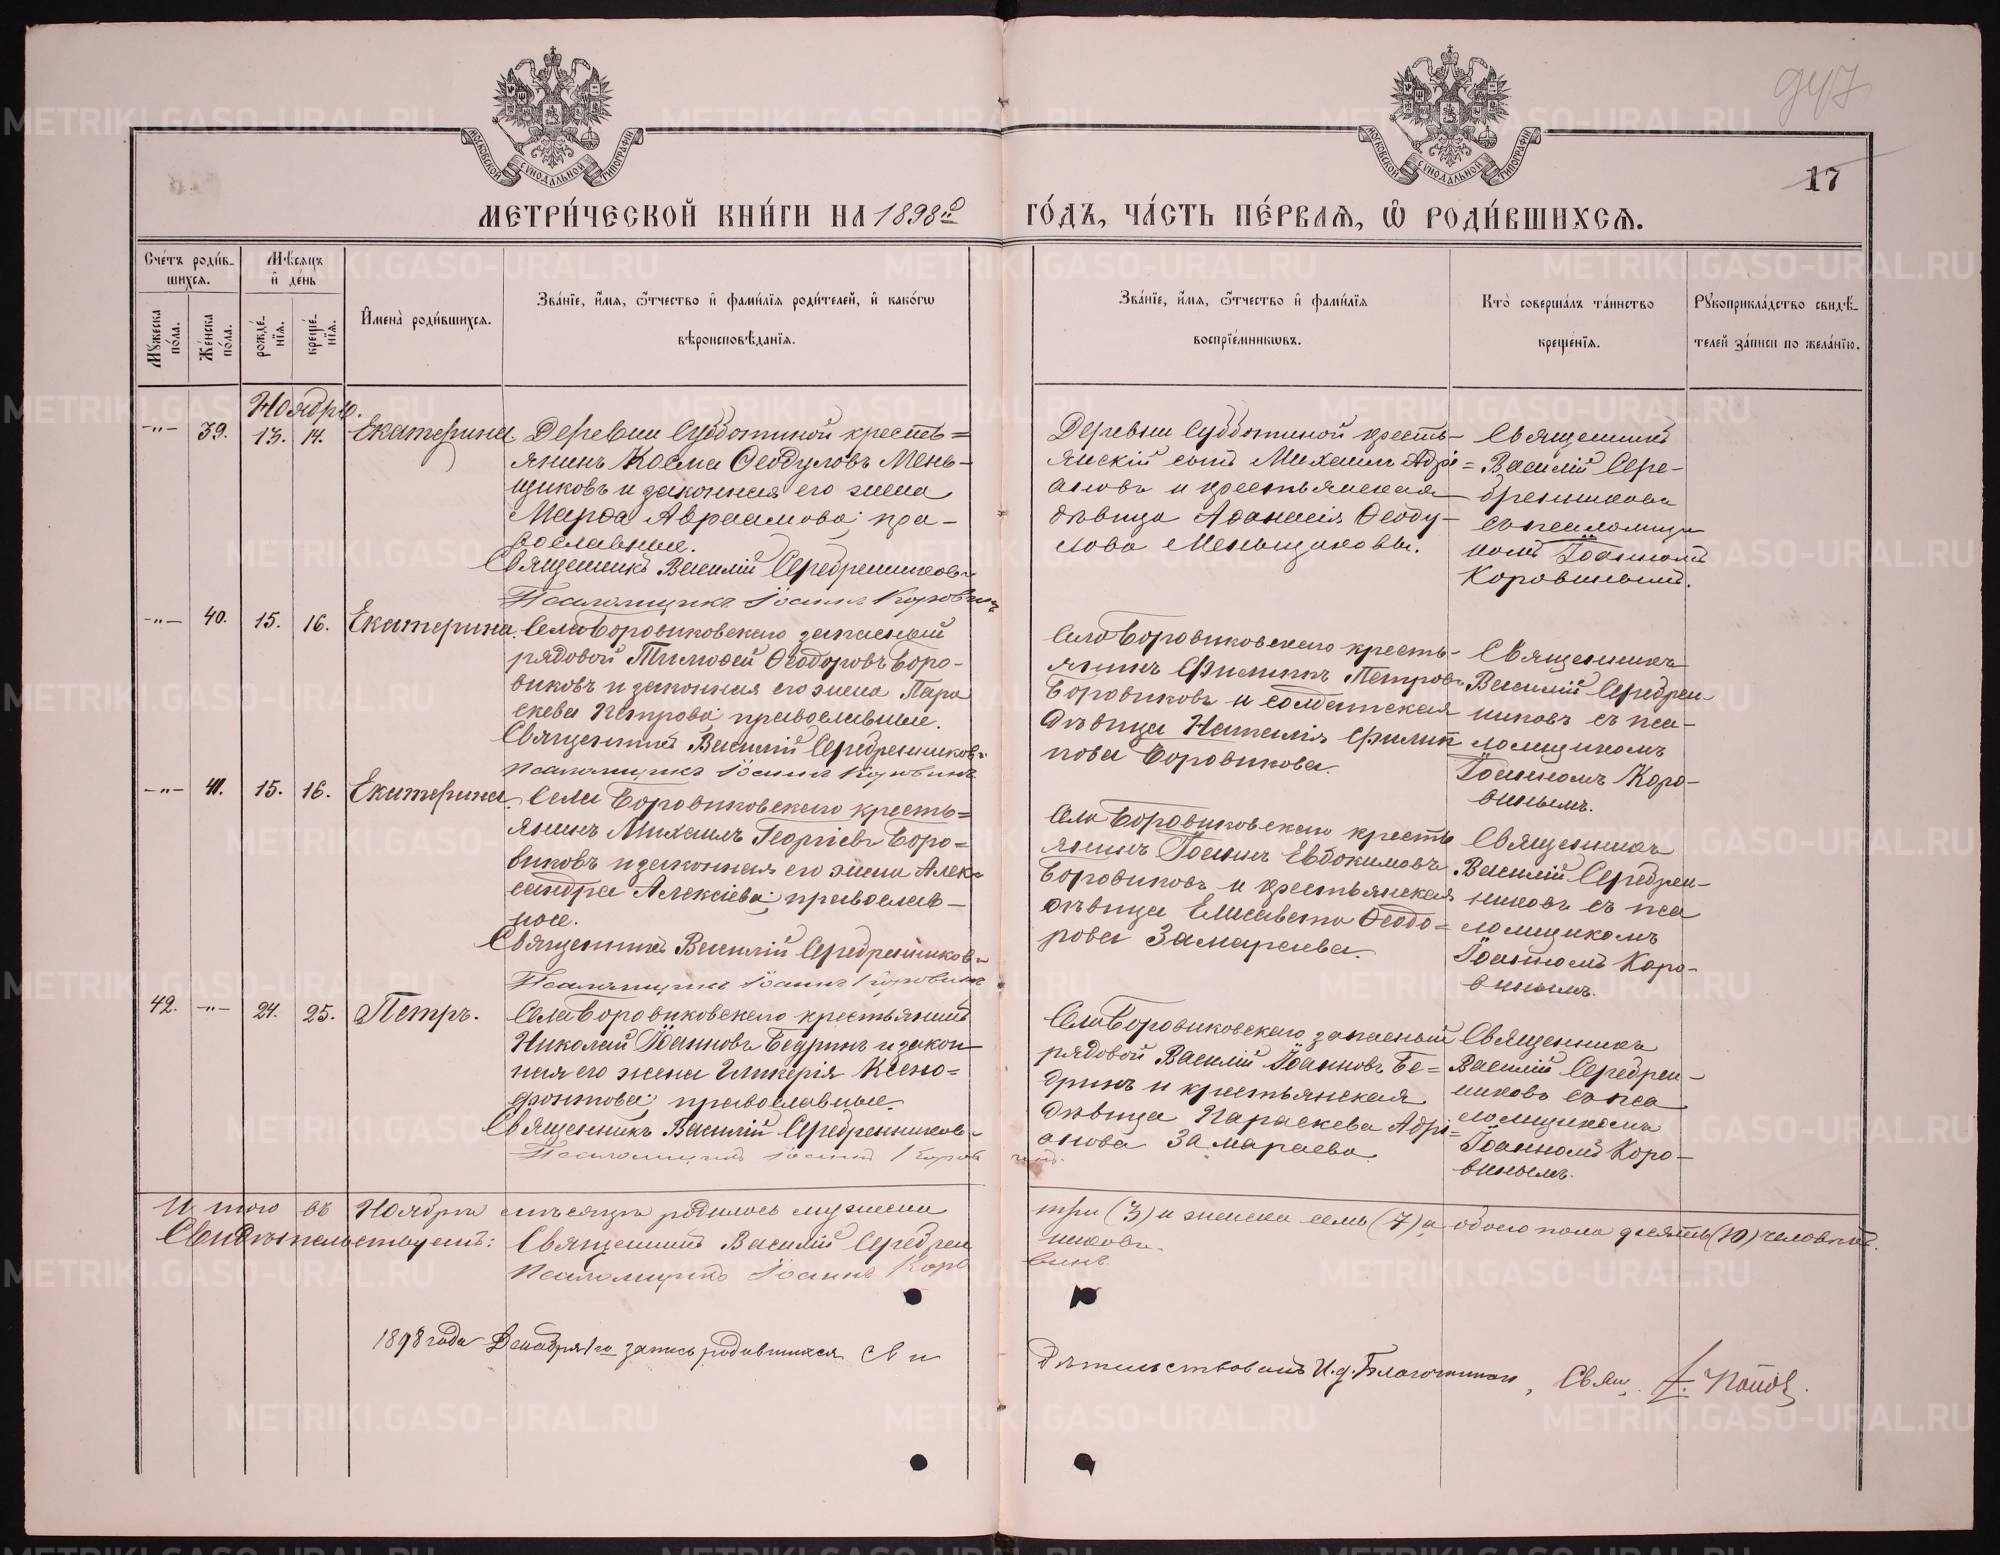 МОСКОВСКОЙ СѴНОДАЛЬНОЙ ТИПОГРАФІИ
МОСКОВСКОЙ СѴНОДАЛЬНОЙ ТИПОГРАФІИ
947
17
МЕТРИ́ЧЕСКОЙ КНИ́ГИ НА 1898й
ГО́ДЪ, ЧА́СТЬ ПЕ́РВАѦ, Ѡ҆ РОДИ́ВШИХСѦ.
Сче́тъ роди́в-
шихсѧ.
Мѣ́сѧцъ
и҆ де́нь
Мꙋ́жеска
по́ла.
Же́нска
по́ла.
рожде́-
нїѧ.
креще́-
нїѧ.
И҆мена̀ роди́вшихсѧ.
Зва́нїе, и҆́мѧ, ѻ҆́тчество и҆ фами́лїѧ роди́телей, и҆ како́гѡ
вѣроисповѣ́данїѧ.
Зва́нїе, и҆́мѧ, ѻ҆́тчество и҆ фами́лїѧ
воспрїе́мникѡвъ.
Кто̀ соверша́лъ та́инство
креще́нїѧ.
Рꙋкоприкла́дство свидѣ́-
телей за́писи по жела́нїю.
Ноябрь.
-"- 39. 13. 14. Екатерина
Деревни Субботиной кресть=
янинъ Косма Ѳеодуловъ Мень-
щиковъ и законная его жена
Марѳа Авраамова; пра-
вославные.
Священникъ Василій Серебренниковъ
Псаломщикъ Іоаннъ Коровинъ
Деревни Субботиной кресть-
янскій сынъ Михаилъ Адрі=
ановъ и крестьянская
дѣвица Аѳанасія Ѳеоду-
лова Меньщиковы.
Священникъ
Василій Сере-
бренниковъ
съ псаломщи
комъ Іоанномъ
Коровинымъ.
-"- 40. 15. 16. Екатерина.
Села Боровиковскаго запасный
рядовой Тимоѳей Ѳеодоровъ Боро-
виковъ и законная его жена Пара
скева Петрова; православные.
Священникъ Василій Серебренниковъ
Псаломщикъ Іоаннъ Коровинъ
Села Боровиковскаго кресть-
янинъ Филиппъ Петровъ
Боровиковъ и солдатская
дѣвица Наталія Филип
пова Боровикова.
Священникъ
Василій Серебрен
никовъ съ пса-
ломщикомъ
Іоанномъ Коро-
винымъ.
-"- 41. 15. 16. Екатерина.
Села Боровиковскаго кресть=
янинъ Михаилъ Георгіевъ Боро=
виковъ и законная его жена Алек
сандра Алексіева; православ-
ные.
Священникъ Василій Серебренниковъ
Псаломщикъ Іоаннъ Коровинъ
Села Боровиковскаго кресть
янинъ Іоаннъ Евдокимовъ
Боровиковъ и крестьянская
дѣвица Елисавета Ѳеодо=
рова Замараева.
Священникъ
Василій Серебрен-
никовъ съ пса
ломщикомъ
Іоанномъ Коро-
винымъ.
42. -"- 24. 25. Петръ.
Села Боровиковскаго крестьянинъ
Николай Іоанновъ Бедринъ и закон
ная его жена Гликерія Ксено=
фонтова; православные.
Священникъ Василій Серебренниковъ
Псаломщикъ Іоаннъ Коровинъ.
Села Боровиковскаго запасный
рядовой Василій Іоанновъ Бе=
дринъ и крестьянская
дѣвица Параскева Адрі=
анова Замараева
Священникъ
Василій Серебрен-
никовъ съ пса
ломщикомъ
Іоанномъ Коро-
винымъ.
Итого въ Ноябрѣ мѣсяцѣ родилось мужеска три (3) и женска семь (7), а обоего пола десять (10) человѣкъ.
Свидѣтельствуемъ: Священникъ Василій Серебренниковъ.
Псаломщикъ Іоаннъ Коровинъ
1898 года Декабря 1го запись родившихся сви дѣтельствовалъ И. д. Благочиннаго, Свящ. Поповъ.
METRIKI.GASO-URAL.RU